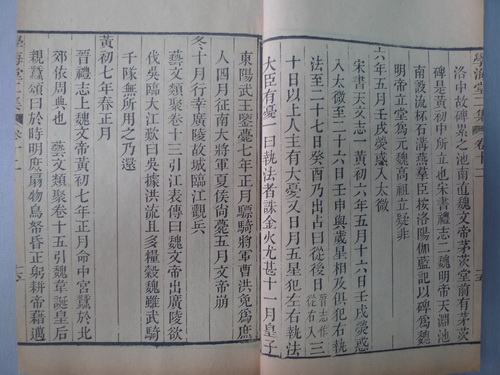 學海堂二集 卷十二
洛中故碑累之池南直魏文帝茅茨堂前有茅茨
碑是黃初中所立也宋書禮志二魏明帝天淵池
南設流杯石溝燕羣臣按洛陽伽藍記以碑爲魏
明帝立堂爲元魏高祖立疑非
六年五月壬戌熒惑入太微
宋書天文志一黃初六年五月十六日壬戌熒惑
入太微至二十六日壬申與歲星相及俱犯右執
法至二十七日癸酉乃出占曰從後日晉志作從右入三
十日以上人主有大憂又日月五星犯左右執法
大臣有憂一曰執法者誅金火尤甚十一月皇子
東陽武王鑒薨七年正月驃騎將軍曹洪免爲庶
人四月征南大將軍夏侯尚薨五月文帝崩
冬十月行幸廣陵故城臨江觀兵
藝文類聚卷十三引江表傳曰魏文帝出廣陵欲
伐吳臨大江歎曰吳據洪流且多糧穀魏雖武騎
千隊無所用之乃還
黃初七年春正月
晉禮志上魏文帝黃初七年正月命中宮蠶於北
郊依周典也 藝文類聚卷十五引魏韋誕皇后
親蠶頌曰於時明庶扇物鳥帑昏正躬耕帝藉邁
學海堂二集 卷十二